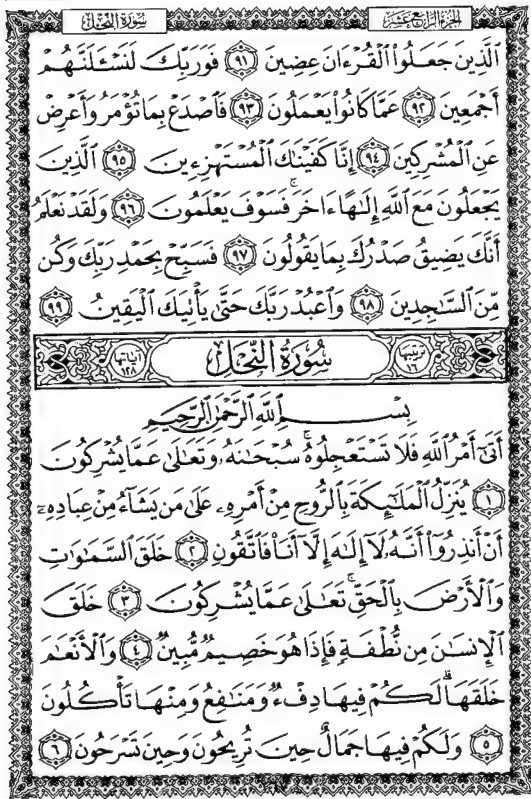 الجزء الرابع عشر سورة النحل
الَّذِينَ جَعَلُوا الْقُرْءَانَ عِضِينَ ٩١ فَوَرَبِّكَ لَنَسْـَٔلَنَّهُمْ
أَجْمَعِينَ ٩٢ عَمَّا كَانُوا يَعْمَلُونَ ٩٣ فَاصْدَعْ بِمَا تُؤْمَرُ وَأَعْرِضْ
عَنِ الْمُشْرِكِينَ ٩٤ إِنَّا كَفَيْنَٰكَ الْمُسْتَهْزِءِينَ ٩٥ الَّذِينَ
يَجْعَلُونَ مَعَ اللَّهِ إِلَٰهًا ءَاخَرَ ۚ فَسَوْفَ يَعْلَمُونَ ٩٦ وَلَقَدْ نَعْلَمُ
أَنَّكَ يَضِيقُ صَدْرُكَ بِمَا يَقُولُونَ ٩٧ فَسَبِّحْ بِحَمْدِ رَبِّكَ وَكُن
مِّنَ السَّٰجِدِينَ ٩٨ وَاعْبُدْ رَبَّكَ حَتَّىٰ يَأْتِيَكَ الْيَقِينُ ٩٩
ترتيبها ١٦ سُورَةُ النَّحْلِ آياتها ١٢٨
بِسْمِ اللَّهِ الرَّحْمَٰنِ الرَّحِيمِ
أَتَىٰ أَمْرُ اللَّهِ فَلَا تَسْتَعْجِلُوهُ ۚ سُبْحَٰنَهُۥ وَتَعَٰلَىٰ عَمَّا يُشْرِكُونَ
١ يُنَزِّلُ الْمَلَٰٓئِكَةَ بِالرُّوحِ مِنْ أَمْرِهِۦ عَلَىٰ مَن يَشَآءُ مِنْ عِبَادِهِۦٓ
أَنْ أَنذِرُوٓا أَنَّهُۥ لَآ إِلَٰهَ إِلَّآ أَنَا۠ فَاتَّقُونِ ٢ خَلَقَ السَّمَٰوَٰتِ
وَالْأَرْضَ بِالْحَقِّ ۚ تَعَٰلَىٰ عَمَّا يُشْرِكُونَ ٣ خَلَقَ
الْإِنسَٰنَ مِن نُّطْفَةٍ فَإِذَا هُوَ خَصِيمٌ مُّبِينٌ ٤ وَالْأَنْعَٰمَ
خَلَقَهَا ۗ لَكُمْ فِيهَا دِفْءٌ وَمَنَٰفِعُ وَمِنْهَا تَأْكُلُونَ
٥ وَلَكُمْ فِيهَا جَمَالٌ حِينَ تُرِيحُونَ وَحِينَ تَسْرَحُونَ ٦